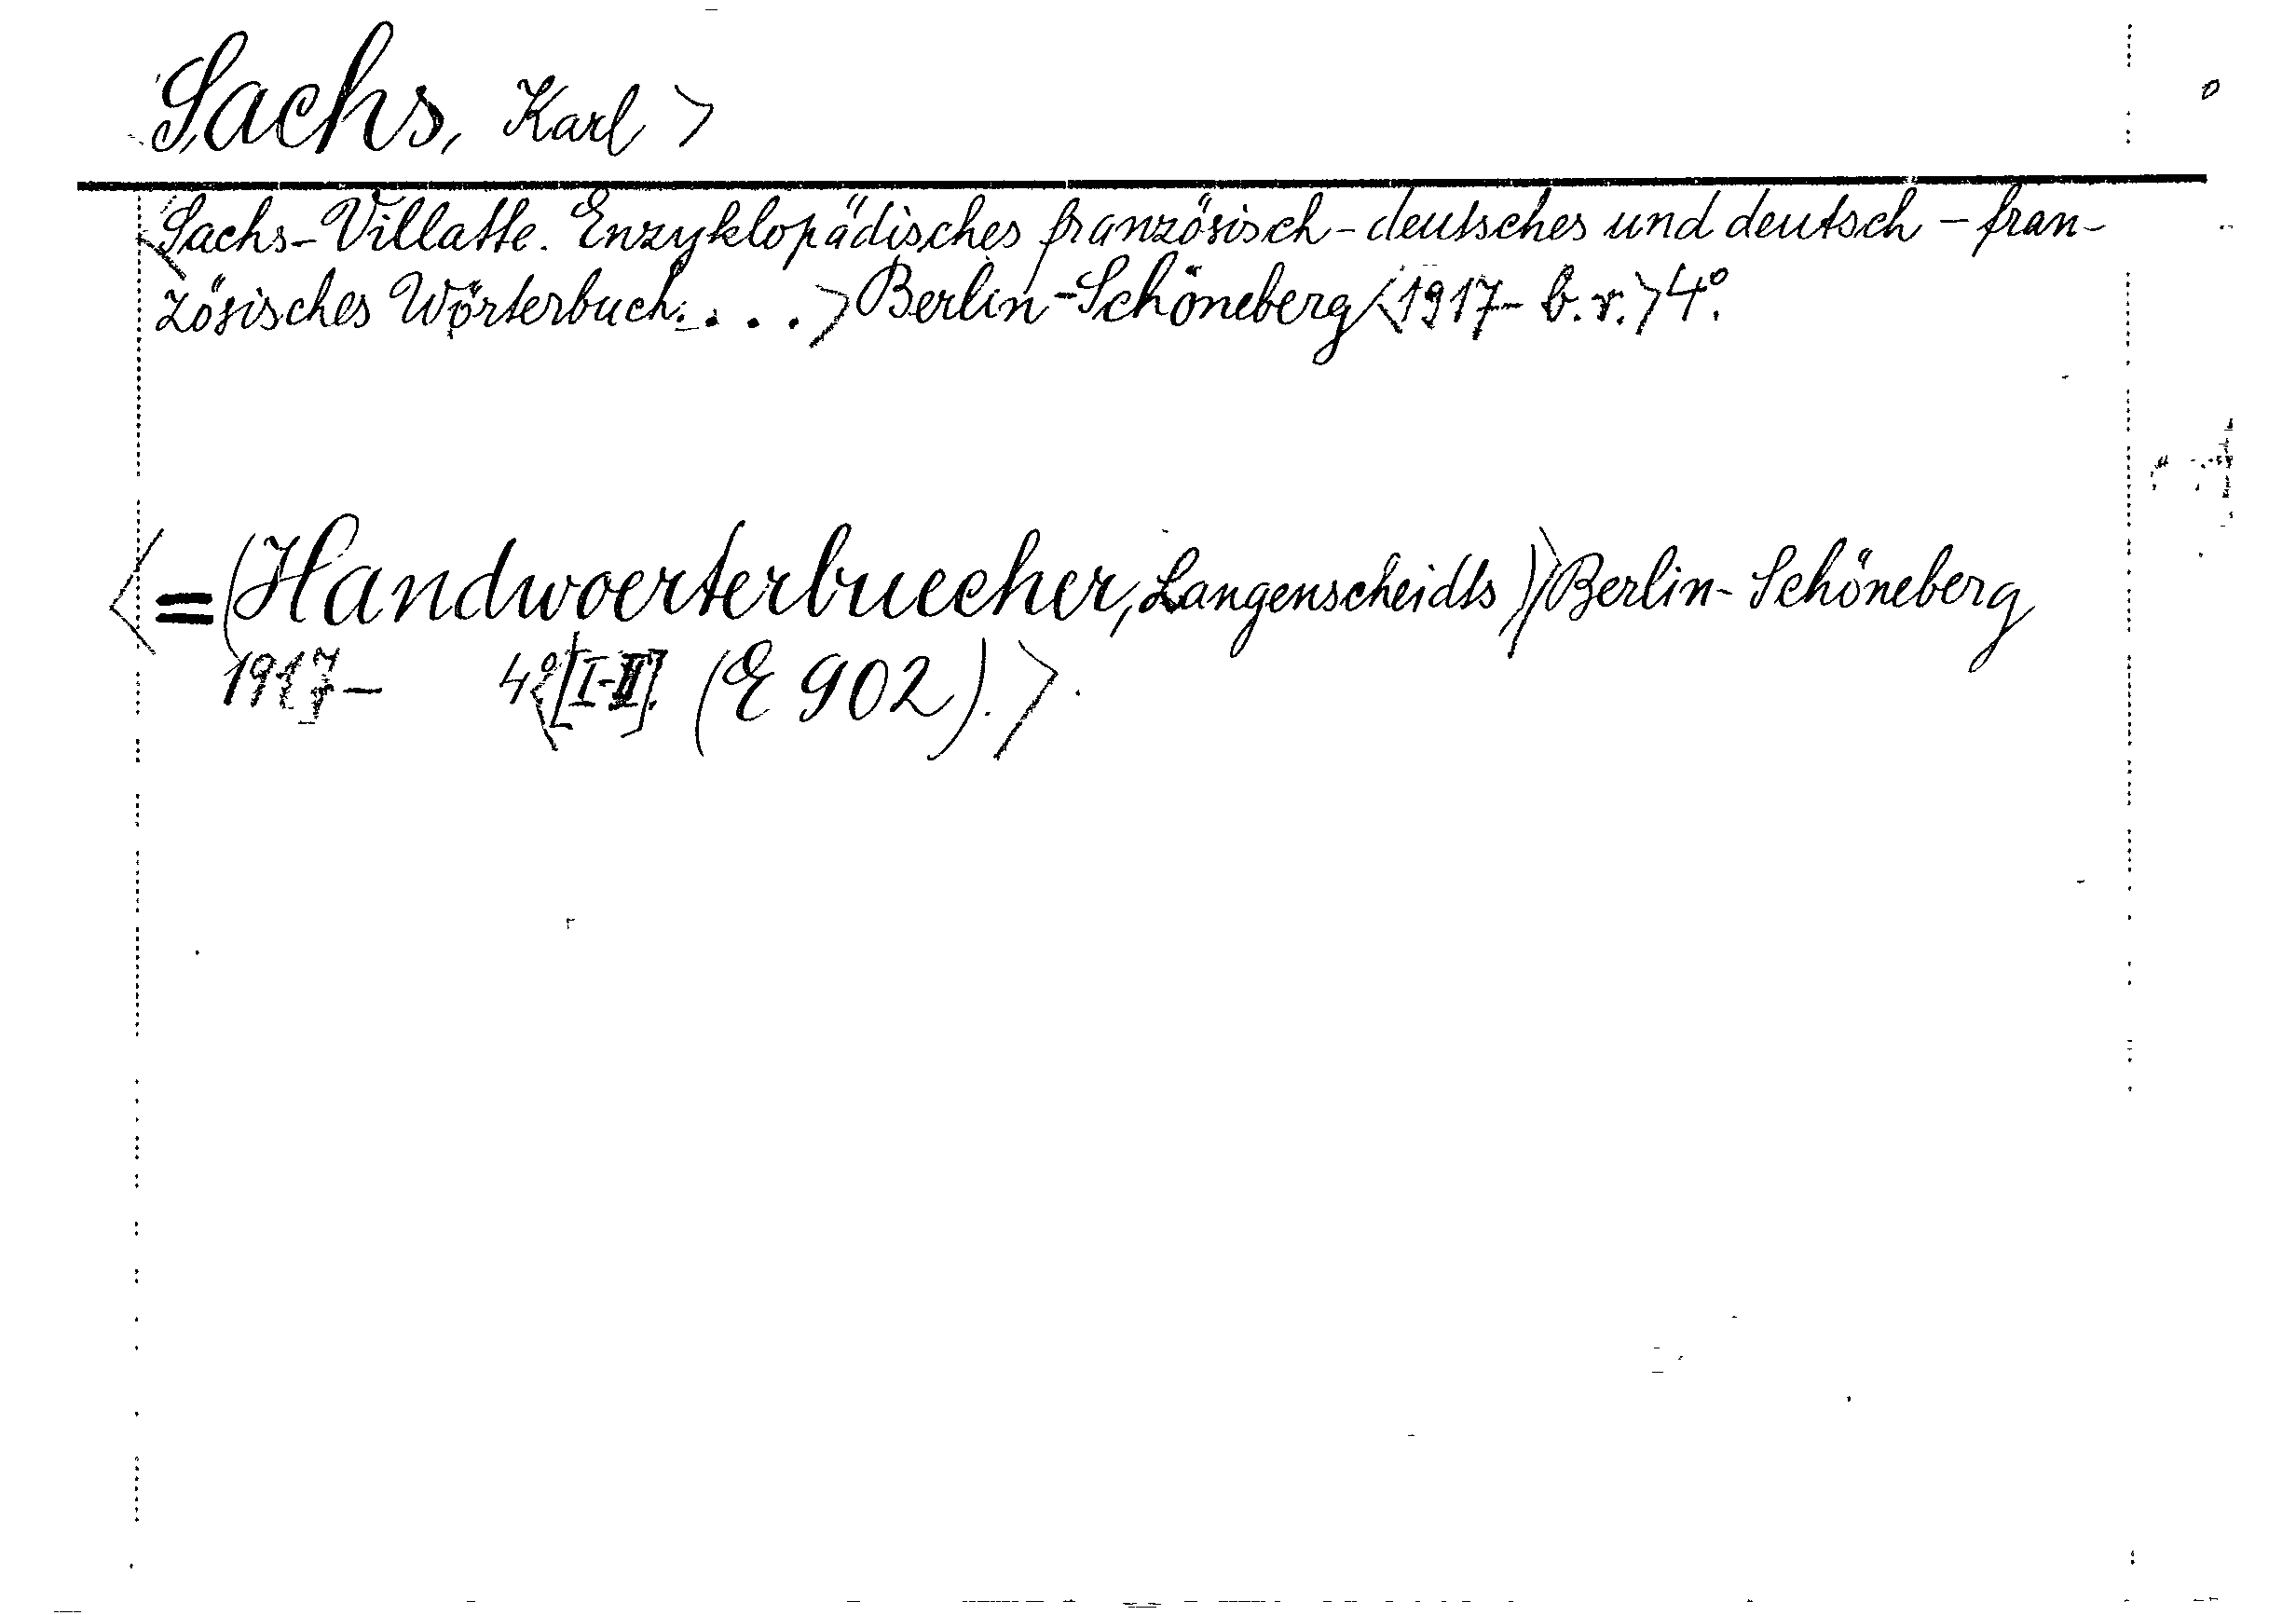 Sachs, Karl >
<Sachs-Villatte. Enzyklopädisches französisch-deutsches und deutsch-fran-
zösisches Wörterbuch. . . . > Berlin-Schöneberg <1917- b. v.> 4°.
<= (Handwoerterbuecher, Langenscheidts)> Berlin-Schöneberg
1917- 4° <[I-II]. (E 902).>.